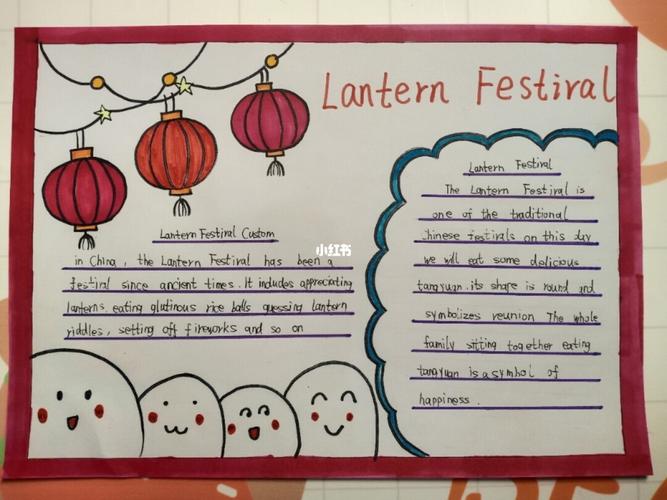 Lantern Festival
Lantern Festival Custom
in China, the Lantern Festival has been a
festival since ancient times. It includes appreciating
lanterns. eating glutinous rice balls guessing lantern
riddles, setting off fireworks and so on
小红书
Lantern Festival
The Lantern Festival is
one of the traditional
Chinese festivals on this day
we will eat some delicious
tangyuan. its shape is round and
symbolizes reunion The whole
family sitting together eating
tangyuan is a symbol of
happiness.